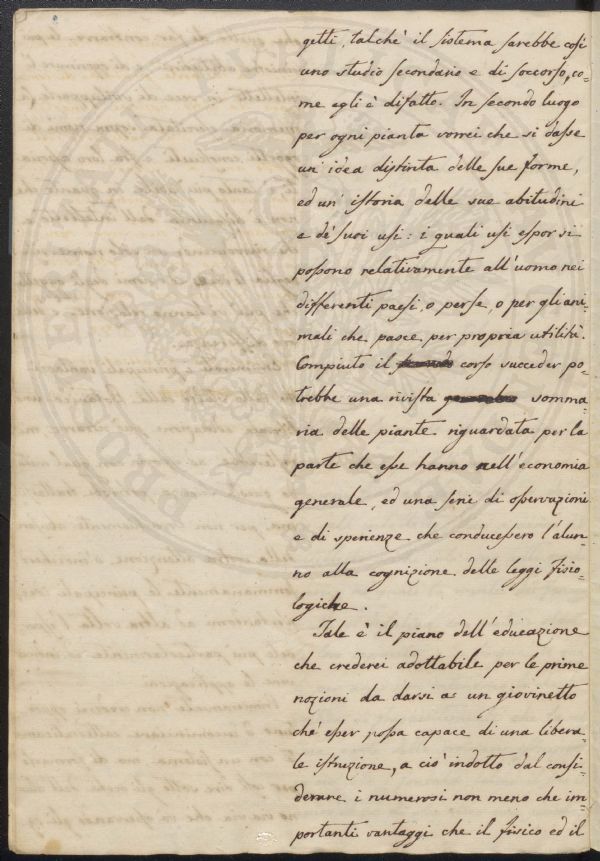 getti, talchè il sistema sarebbe così
uno studio secondario e di soccorso, co-
me egli è difatto. In secondo luogo
per ogni pianta vorrei che si dasse
un'idea distinta delle sue forme,
ed un'istoria delle sue abitudini
e de' suoi usi: i quali usi espor si
possono relativamente all'uomo nei
differenti paesi, o per se, o per gli ani-
mali che pasce per propria utilità.
Compiuto il corso succeder po-
trebbe una rivista somma-
ria delle piante riguardata per la
parte che esse hanno nell'economia
generale, ed una serie di osservazioni
e di sperienze che conducessero l'alun-
no alla cognizione delle leggi fisio-
logiche.
Tale è il piano dell'educazione
che crederei adottabile per le prime
nozioni da darsi a un giovinetto
chè esser possa capace di una libera-
le istruzione, a ciò indotto dal consi-
derare i numerosi non meno che im-
portanti vantaggi che il fisico ed il